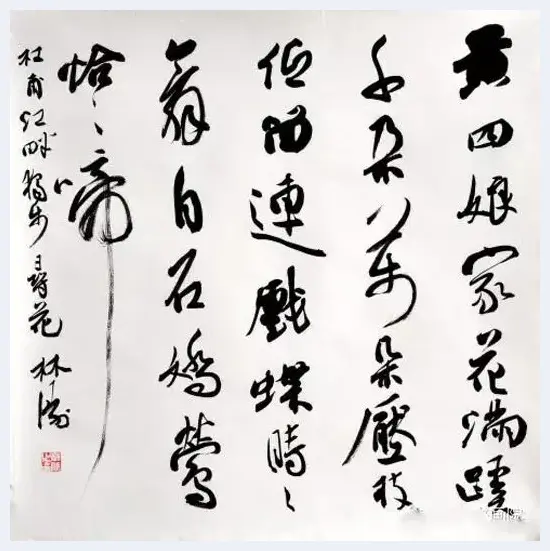 黄四娘家花滿蹊
千朵萬朵壓枝
低留連戲蝶時〻
舞自在嬌鶯
恰〻啼
杜甫江畔獨步尋花 林